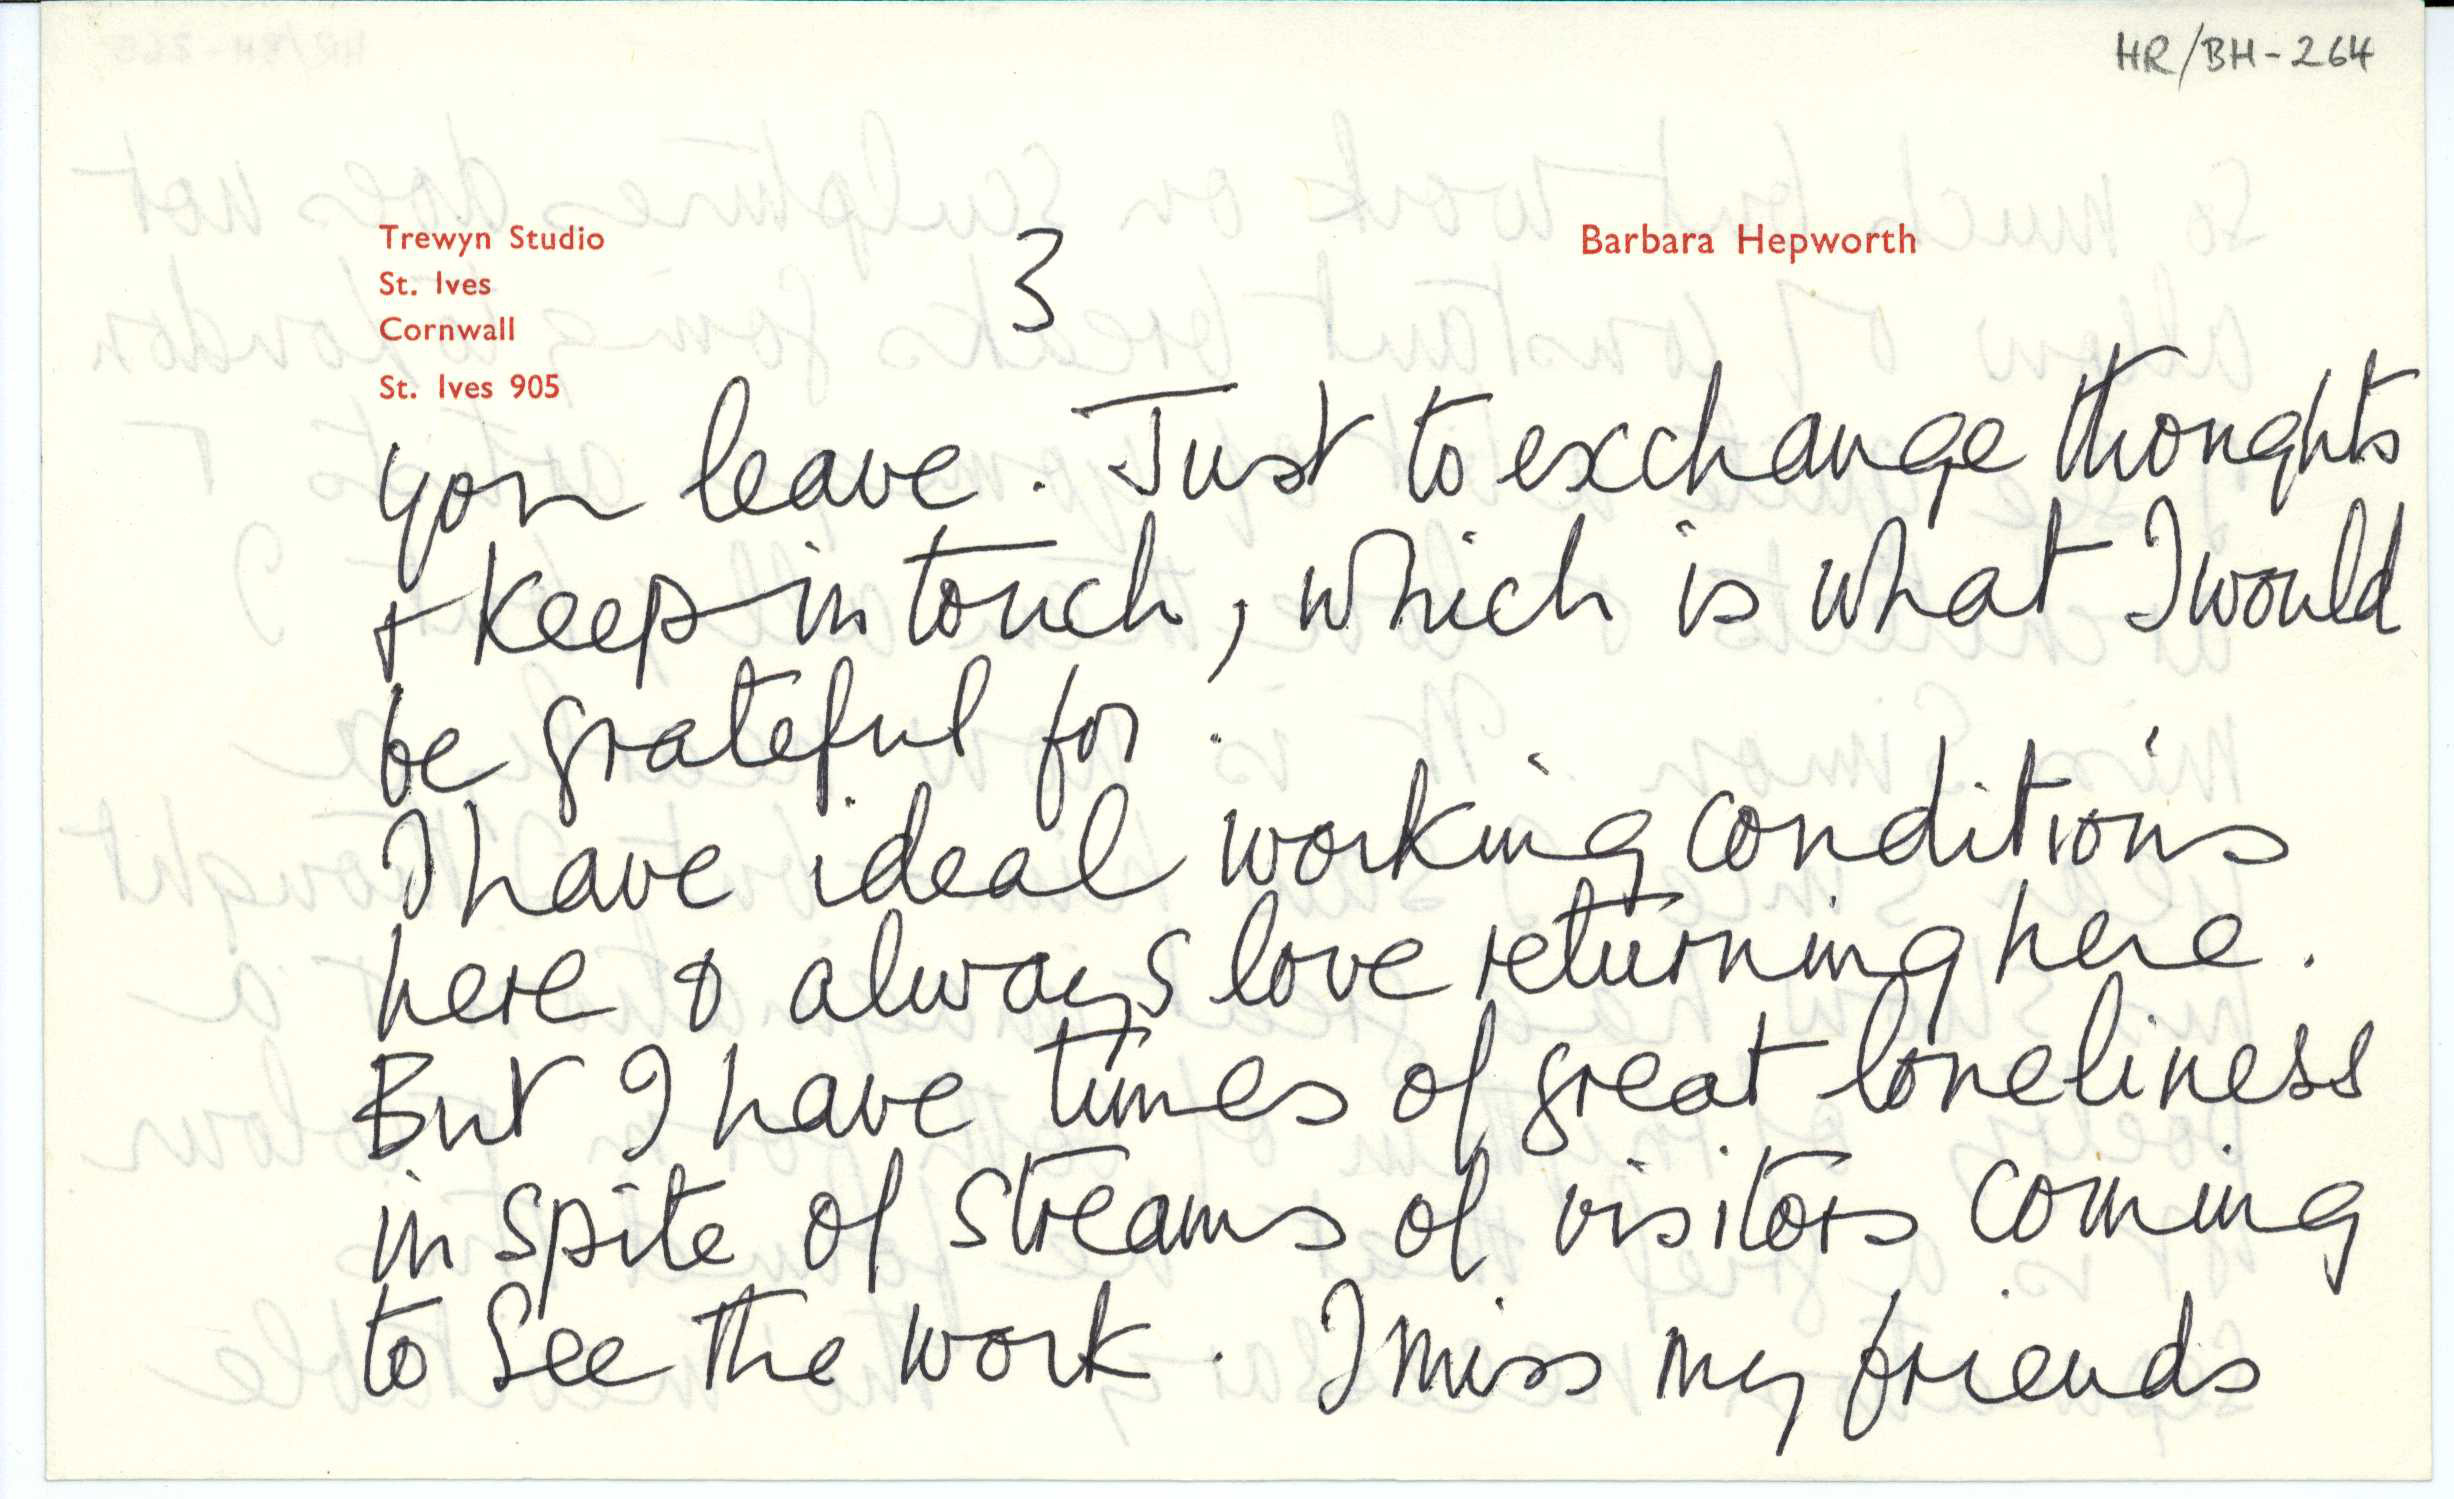 HR/BH-264
Trewyn Studio
St. Ives
Cornwall
St. Ives 905
3
Barbara Hepworth
you leave. Just to exchange thoughts
+ keep in touch, which is what I would
be grateful for.
I have ideal working conditions
here & always love returning here.
But I have times of great loneliness
in spite of streams of visitors coming
to see the work. I miss my friends